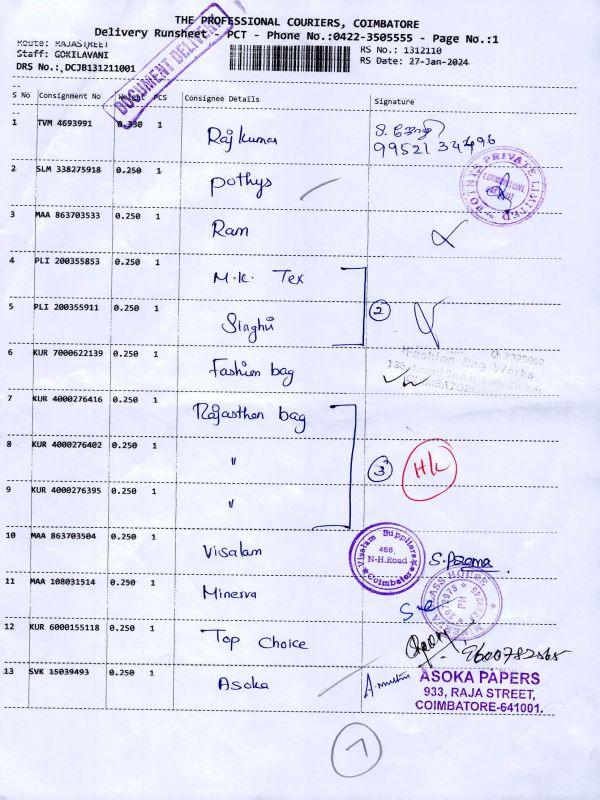 THE PROFESSIONAL COURIERS, COIMBATORE
Delivery Runsheet - PCT - Phone No.:0422-3505555 - Page No.:1
Route: RAJASTREET
Staff: GOKILAVANI
DRS No.: DCJB131211001
RS No.: 1312110
RS Date: 27-Jan-2024
DOCUMENT DELIVERY
S No Consignment No Weight PCS Consignee Details Signature
1 TVM 4693991 0.330 1 Rajkumar
2 SLM 338275918 0.250 1 Pothys
PRIVATE LIMITED
COIMBATORE
3 MAA 863703533 0.250 1 Ram
4 PLI 200355853 0.250 1 M.K. Tex
2
5 PLI 200355911 0.250 1 Singhu
6 KUR 7000622139 0.250 1 Fashion bag
Fashion Bag Works
7 KUR 4000276416 0.250 1 Rajasthan bag
8 KUR 4000276402 0.250 1 "
3 HK
9 KUR 4000276395 0.250 1 "
10 MAA 863703504 0.250 1 Visalam
Visalam Suppliers
466,
N-H.Road
Coimbatore
11 MAA 108031514 0.250 1 Minerva
MINERVA GLASS HOUSE
12 KUR 6000155118 0.250 1 Top Choice
13 SVK 15039493 0.250 1 Asoka
ASOKA PAPERS
933, RAJA STREET,
COIMBATORE-641001.
7